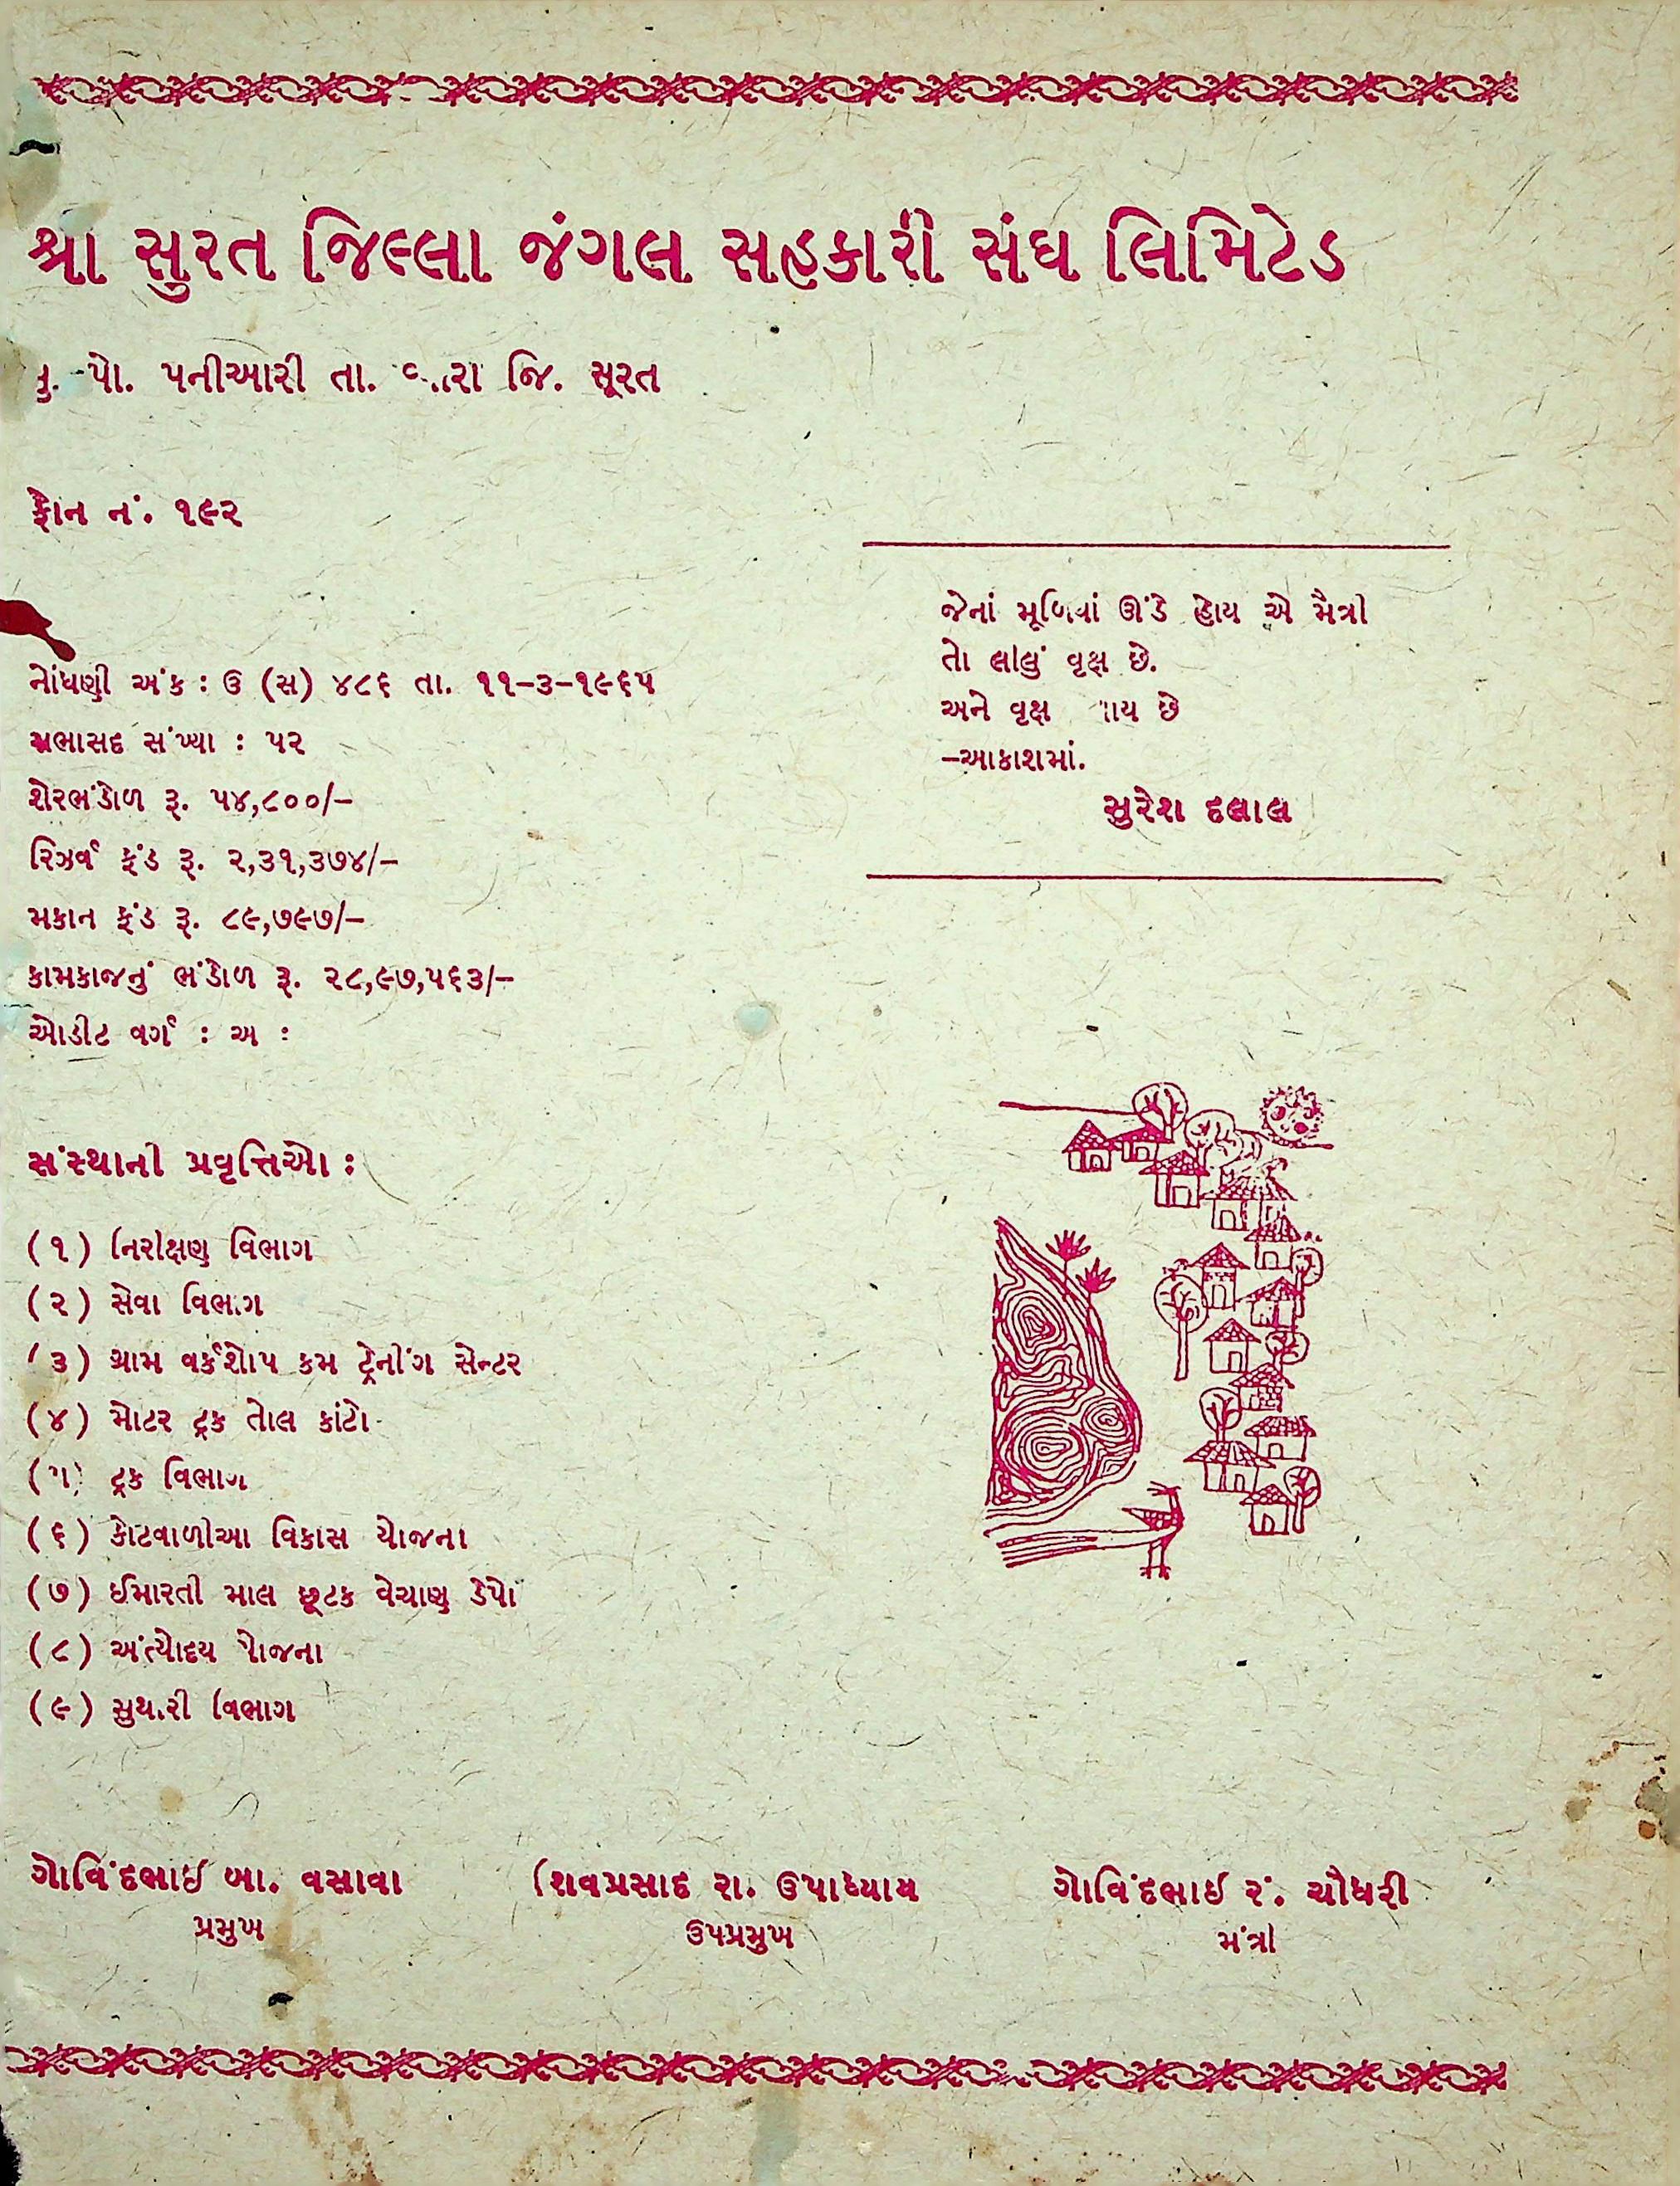 શ્રી સુરત જિલ્લા જંગલ સહકારી સંઘ લિમિટેડ
મુ. પો. પનીઆરી તા. વ્યારા જિ. સૂરત
ફોન નં. ૧૯૨
નોંધણી અંક : ઉ (સ) ૪૮૬ તા. ૧૧-૩-૧૯૬૫
સભાસદ સંખ્યા : ૫૨
શેરભંડોળ રૂ. ૫૪,૮૦૦/-
રિઝર્વ ફંડ રૂ. ૨,૩૧,૩૭૪/-
મકાન ફંડ રૂ. ૮૯,૭૯૭/-
કામકાજનું ભંડોળ રૂ. ૨૮,૯૭,૫૬૩/-
ઓડીટ વર્ગ : અ :
જેનાં મૂળિયાં ઊંડે હોય એ મૈત્રી
તો લીલું વૃક્ષ છે.
અને વૃક્ષ છે
-આકાશમાં.
સુરેશ દલાલ
સંસ્થાની પ્રવૃત્તિઓ :
(૧) નિરીક્ષણ વિભાગ
(૨) સેવા વિભાગ
(૩) ગ્રામ વર્કશોપ કમ ટ્રેનીંગ સેન્ટર
(૪) મોટર ટ્રક તોલ કાંટો
(૫) ટ્રક વિભાગ
(૬) કોટવાળીઆ વિકાસ યોજના
(૭) ઈમારતી માલ છૂટક વેચાણ ડેપો
(૮) અંત્યોદય યોજના
(૯) સુથારી વિભાગ
ગોવિંદભાઈ બા. વસાવા
પ્રમુખ
શિવપ્રસાદ રા. ઉપાધ્યાય
ઉપપ્રમુખ
ગોવિંદભાઈ રં. ચૌધરી
મંત્રી